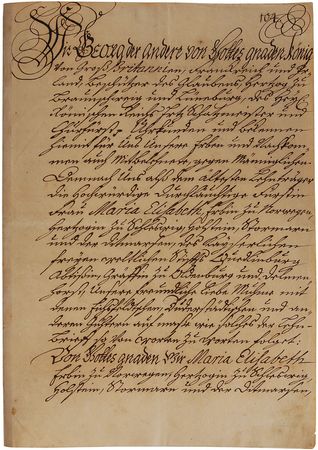 104.
Wir Georg der andere von Gottes gnaden König
von Groß Britannien, Franckreich und Ir-
land, Beschützer des Glaubens, Hertzog zu
Braunschweig und Lüneburg, des Heil.
Römischen Reichs Ertz Schatzmeister und
Churfürst. Uhrkunden und bekennen
hiemit für Uns Unsere Erben und Nachkom-
men auch Mitbelehnte, gegen Männiglichen
Demnach Uns alß dem ältesten Lehnträger
die Hochwürdige Durchläuchtige Fürstin
Frau Maria Elisabeth, Erbin zu Norwegen,
Hertzogin zu Schleßwig, Holstein, Stormarn
und der Ditmarsen, des Kayserlichen
freyen weltlichen Stiffts Quedlinburg
Abtissin, Gräffin zu Oldenburg und Delmen
horst, Unsere freundliche liebe Muhme mit
denen und an-
deren Gütern auf masse wie solches der Lehn-
brieff so von worten zu worten folget:
Von Gottes gnaden Wir Maria Elisabeth
Erbin zu Norwegen, Hertzogin zu Schleßwig
Holstein, Stormarn und der Ditmarsen,